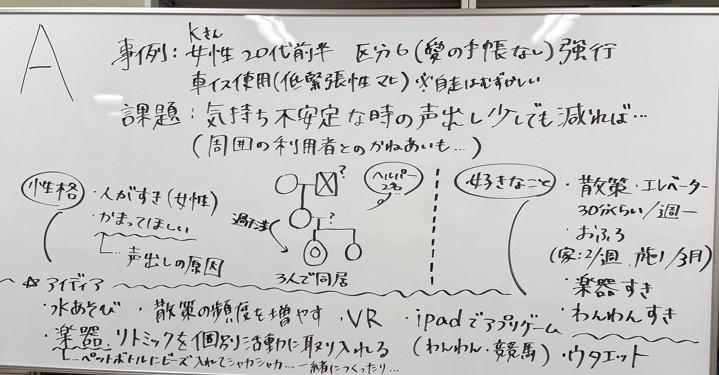 A
Kさん
事例：女性 20代前半 区分6（愛の手帳なし）強行
車イス使用（低緊張性マヒ）※自走はむずかしい
課題：気持ち不安定な時の声出し少しでも減れば…
（周囲の利用者とのかねあいも…）
性格
・人がすき（女性）
・かまってほしい
声出しの原因
?
?
過干渉
ヘルパー
2名…
3人で同居
好きなこと
・散策・エレベーター
30分くらい/週一
・おふろ
（家：2/週 施1/3月）
・楽器すき
・わんわんすき
☆アイディア
・水あそび ・散策の頻度を増やす ・VR ・ipadでアプリゲーム
（わんわん・競馬）
・楽器、リトミックを個別活動に取り入れる
ペットボトルにビーズ入れてシャカシャカ…一緒につくったり…
・ウタエット